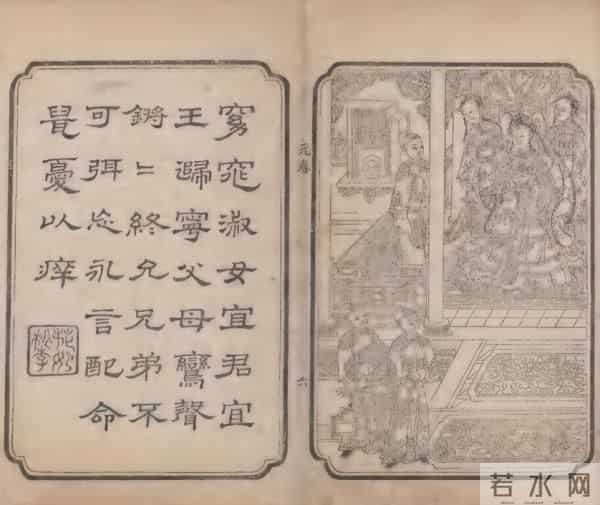 窈窕淑女宜君宜
王歸寧父母鸞聲
鏘〻終允兄弟不
可弭忘永言配命
鼠憂以痒
花如
桃李
元春
六
若水网